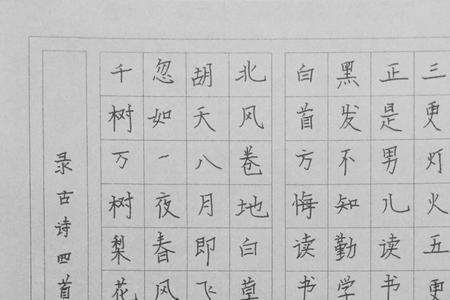 三更灯火五更
正是男儿读书
黑发不知勤学
白首方悔读书
北风卷地白草
胡天八月即飞
忽如一夜春风
千树万树梨花
录古诗四首